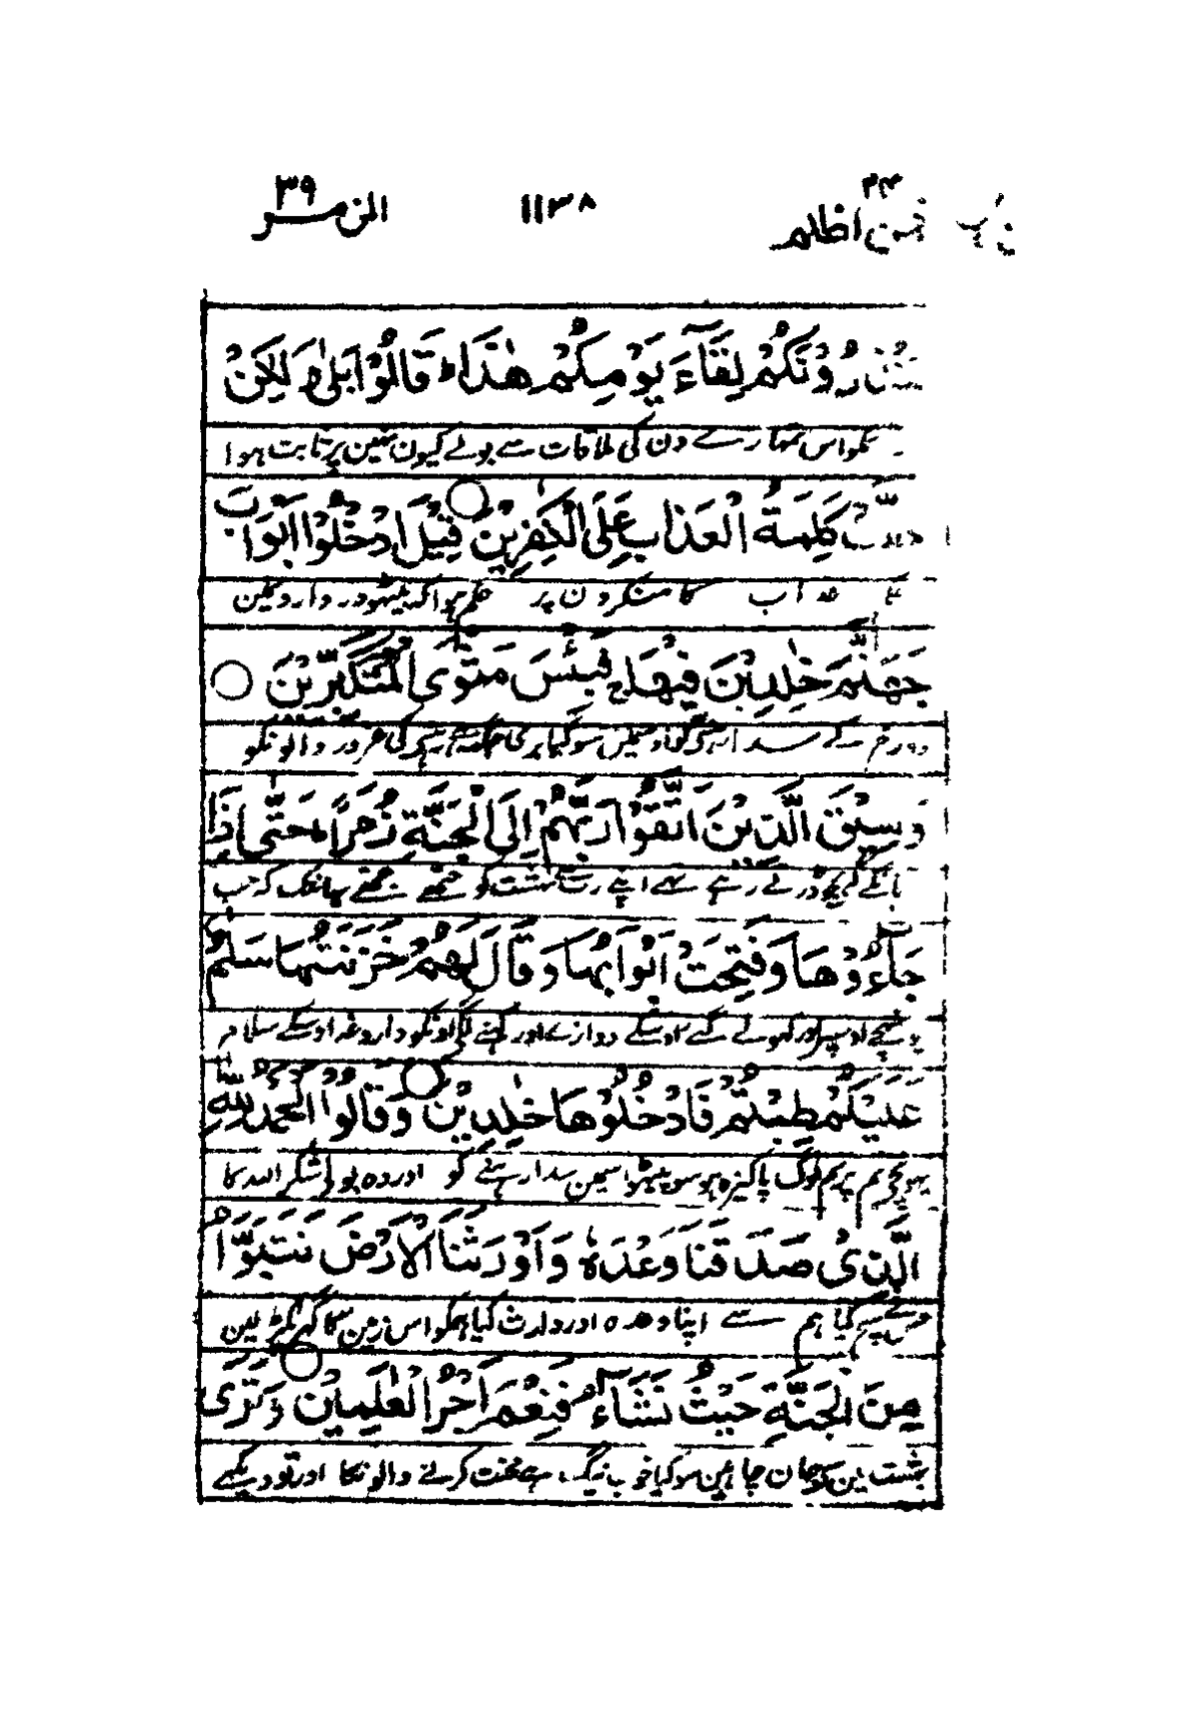 فمن اظلم ۲۴ ۱۱۳۸ الزمر ۳۹
يُنْذِرُوْنَكُمْ لِقَآءَ يَوْمِكُمْ هٰذَا ط قَالُوْا بَلٰى وَلٰكِنْ
تمکو اس تمہارے دن کی ملاقات سے بولے کیون نہین پر ثابت ہوا
حَقَّتْ كَلِمَةُ الْعَذَابِ عَلَى الْكٰفِرِيْنَ ○ قِيْلَ ادْخُلُوْا اَبْوَابَ
عذاب کا منکرون پر حکم ہوا کہ بیٹھو دروازو نمین
جَهَنَّمَ خٰلِدِيْنَ فِيْهَا ج فَبِئْسَ مَثْوَى الْمُتَكَبِّرِيْنَ ○
دوزخ کے سدا رہنے کو اوسمین سو کیا بری جگہہ ہے رہنے کی غرور والونکو
وَسِيْقَ الَّذِيْنَ اتَّقَوْا رَبَّهُمْ اِلَى الْجَنَّةِ زُمَرًا ط حَتّٰى اِذَا
ہانکے گئے جو ڈرتے رہے تھے اپنے رب سے بہشت کو جتھے جتھے یہانتک کہ جب
جَآءُوْهَا وَفُتِحَتْ اَبْوَابُهَا وَقَالَ لَهُمْ خَزَنَتُهَا سَلٰمٌ
پہونچے اوسپر اور کھولے گئے اوسکے دروازے اور کہنے لگے اونکو داروغہ اوسکے سلام
عَلَيْكُمْ طِبْتُمْ فَادْخُلُوْهَا خٰلِدِيْنَ ○ وَقَالُوا الْحَمْدُ لِلّٰهِ
پہونچے تم پر تم لوگ پاکیزہ ہو سو پیٹھو اسمین سدا رہنے کو اور وہ بولے شکر اللہ کا
الَّذِىْ صَدَقَنَا وَعْدَهٗ وَاَوْرَثَنَا الْاَرْضَ نَتَبَوَّاُ
جسنے سچ کیا ہم سے اپنا وعدہ اور وارث کیا ہمکو اس زمین کا گھر پکڑ لین
مِنَ الْجَنَّةِ حَيْثُ نَشَآءُ ج فَنِعْمَ اَجْرُ الْعٰمِلِيْنَ ○ وَتَرَى
بہشت مین سے جہان چاہین سو کیا خوب نیگ ہے محنت کرنے والونکا اور تو دیکھے